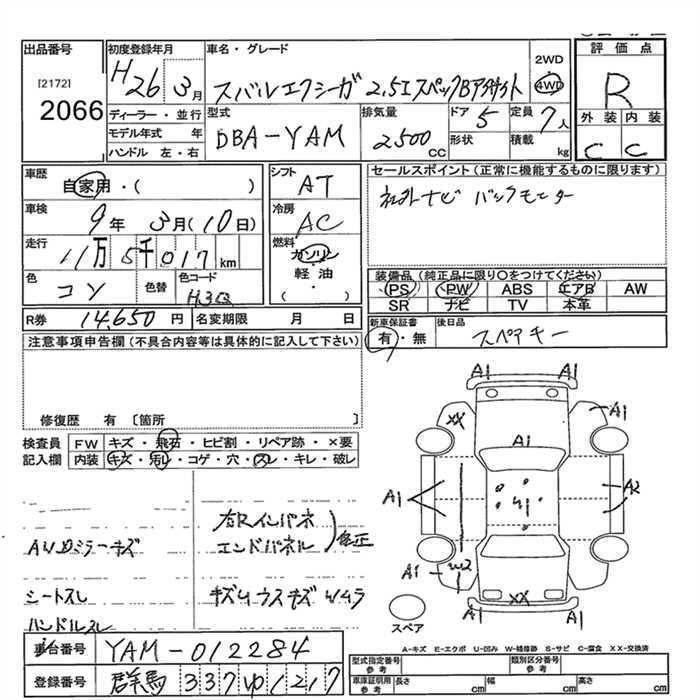 出品番号
[2172]
2066
初度登録年月
H26年3月
車名・グレード
スバルエクシーガ 2.5iスペックBアイサイト
2WD
4WD
評価点
R
外装 内装
C C
ディーラー・並行
モデル年式 年
ハンドル 左・右
型式
DBA-YAM
排気量
2500
CC
ドア 5
形状
定員 7人
積載
kg
車歴
自家用・( )
車検
9年 3月(10日)
走行
11万5千017km
色
コン
色替
色コード
H3Q
シフト
AT
冷房
AC
燃料
ガソリン
軽油
・
( )
セールスポイント(正常に機能するものに限ります)
社外ナビ バックモニター
装備品(純正品に限り○をつけてください)
PS PW ABS エアB AW
SR ナビ TV 本革
R券 14,650円
名変期限 月 日
新車保証書
有・無
後日品
スペアキー
注意事項申告欄(不具合内容等は具体的に記入して下さい)
修復歴 有 〔箇所 〕
検査員
記入欄
FW キズ・飛石・ヒビ割・リペア跡・×要
内装 キズ・汚れ・コゲ・穴・スレ・キレ・破レ
右Rインパネ
エンドパネル
修正
ミラーキズ
シートスレ
ハンドルスレ
キズ ウスキズ Wムラ
A1 A1
XX
A1
A1
A1
A2
A1
W2
XX
A1 A1
スペア
A-キズ E-エクボ U-凹み W-補修跡 S-サビ C-腐食 XX-交換済
車台番号 YAM-012284
登録番号 群馬 337 ゆ 1217
型式指定番号
参考
類別区分番号
参考
車庫証明用
参考
長さ cm 幅 cm 高さ cm